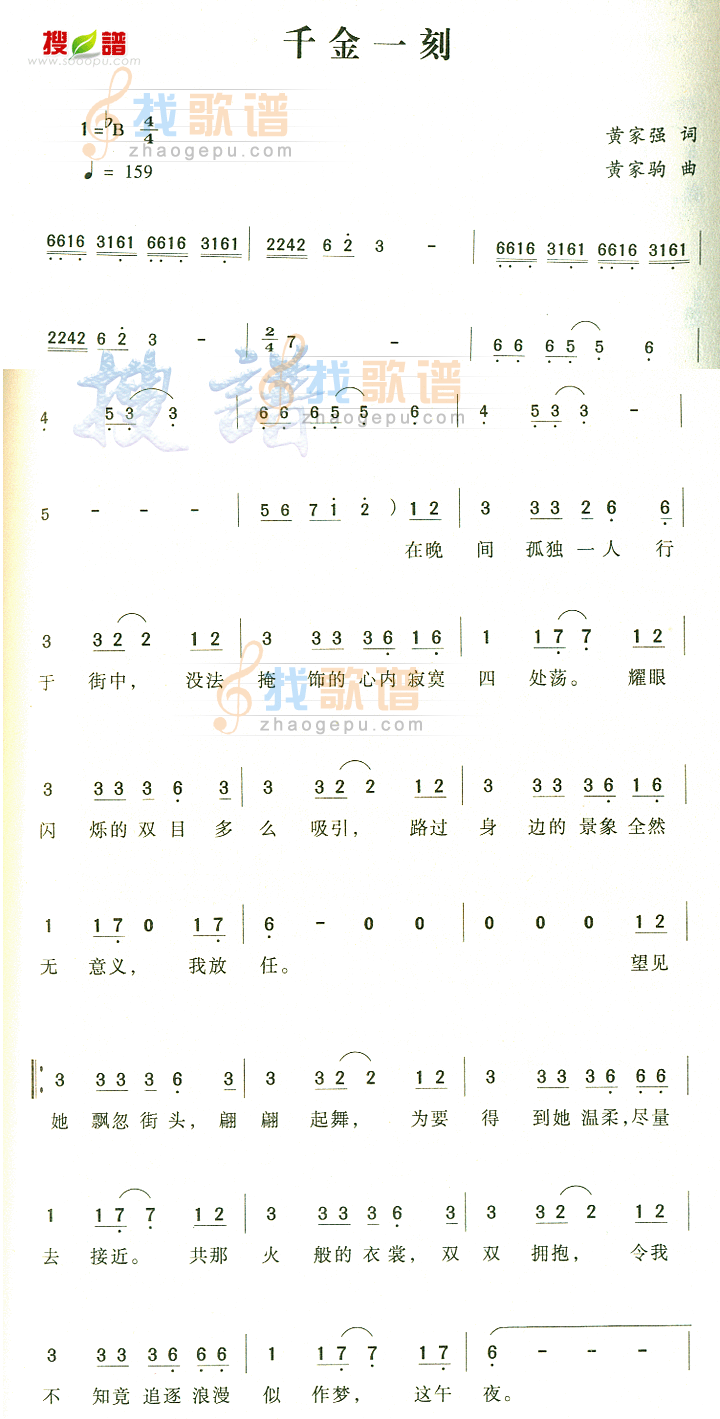 搜谱
www.sooopu.com
千金一刻
找歌谱
zhaogepu.com
1=♭B 4/4
黄家强 词
♩= 159
黄家驹 曲
6616 3161 6616 3161 | 2242 6 2 3 - | 6616 3161 6616 3161 |
2242 6 2 3 - | 2/4 7 - | 6 6 6 5 5 6
搜谱
找歌谱
zhaogepu.com
4 5 3 3 | 6 6 6 5 5 6 | 4 5 3 3 - |
5 - - - | 5 6 7 1 2 ) 1 2 | 3 3 3 2 6 6 |
在晚 间 孤独 一 人 行
3 3 2 2 1 2 | 3 3 3 3 6 1 6 | 1 1 7 7 1 2 |
于 街中, 没法 掩 饰的 心内 寂寞 四 处荡。 耀眼
找歌谱
zhaogepu.com
3 3 3 3 6 3 | 3 3 2 2 1 2 | 3 3 3 3 6 1 6 |
闪 烁的 双 目 多 么 吸引, 路过 身 边的 景象 全然
1 1 7 0 1 7 | 6 - 0 0 | 0 0 0 1 2 |
无 意义, 我放 任。 望见
‖: 3 3 3 3 6 3 | 3 3 2 2 1 2 | 3 3 3 3 6 6 6 |
她 飘忽 街头, 翩 翩 起舞, 为要 得 到她 温柔,尽量
1 1 7 7 1 2 | 3 3 3 3 6 3 | 3 3 2 2 1 2 |
去 接近。 共那 火 般的 衣裳, 双 双 拥抱, 令我
3 3 3 3 6 6 6 | 1 1 7 7 1 7 | 6 - - - |
不 知竟 追逐 浪漫 似 作梦, 这午 夜。